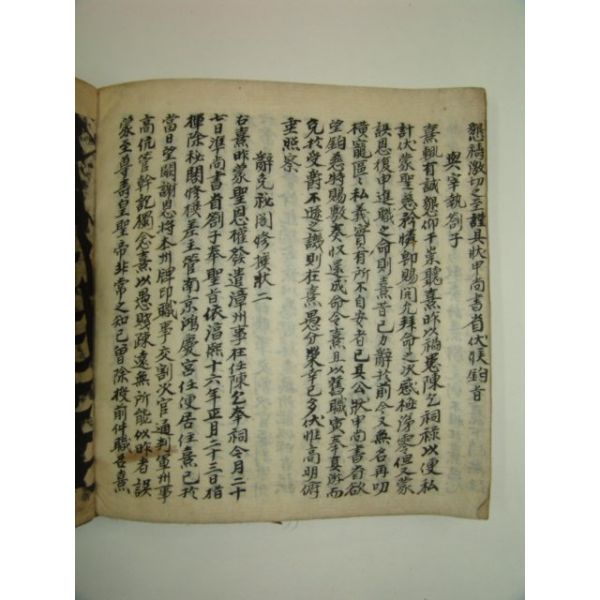 懇禱激切之至謹具狀申尚書省伏候鈞旨
與宰執劄子
熹輒有誠懇仰干崇聽熹昨以禍患陳乞祠祿以便私
計伏蒙聖慈矜憐卽賜開允拜命之次感極涕零但又蒙
誤恩復申進職之命則熹昔已力辭於前今又無名再叨
橫寵區〻私義實有所不自安者已具公狀申尚書省欲
望鈞慈特賜敷奏收還成命令熹且以舊職寅奉真游而
免於受爵不遜之譏則在熹愚分榮幸已多伏惟高明俯
垂照察
辭免祕閣修撰狀二
右熹昨蒙聖恩權發遣漳州事在任陳乞奉祠今月二十
七日準尚書省劄子奉聖旨依淳熙十六年正月二十三日指
揮除秘閣修撰差主管南京鴻慶宮任便居住熹已於
當日望闕謝恩將本州牌印職事交割次官通判軍州事
高伉管幹訖獨念熹以愚賤疎遠無所能似昨者誤
蒙至尊壽皇聖帝非常之知已曾除授前件職名熹